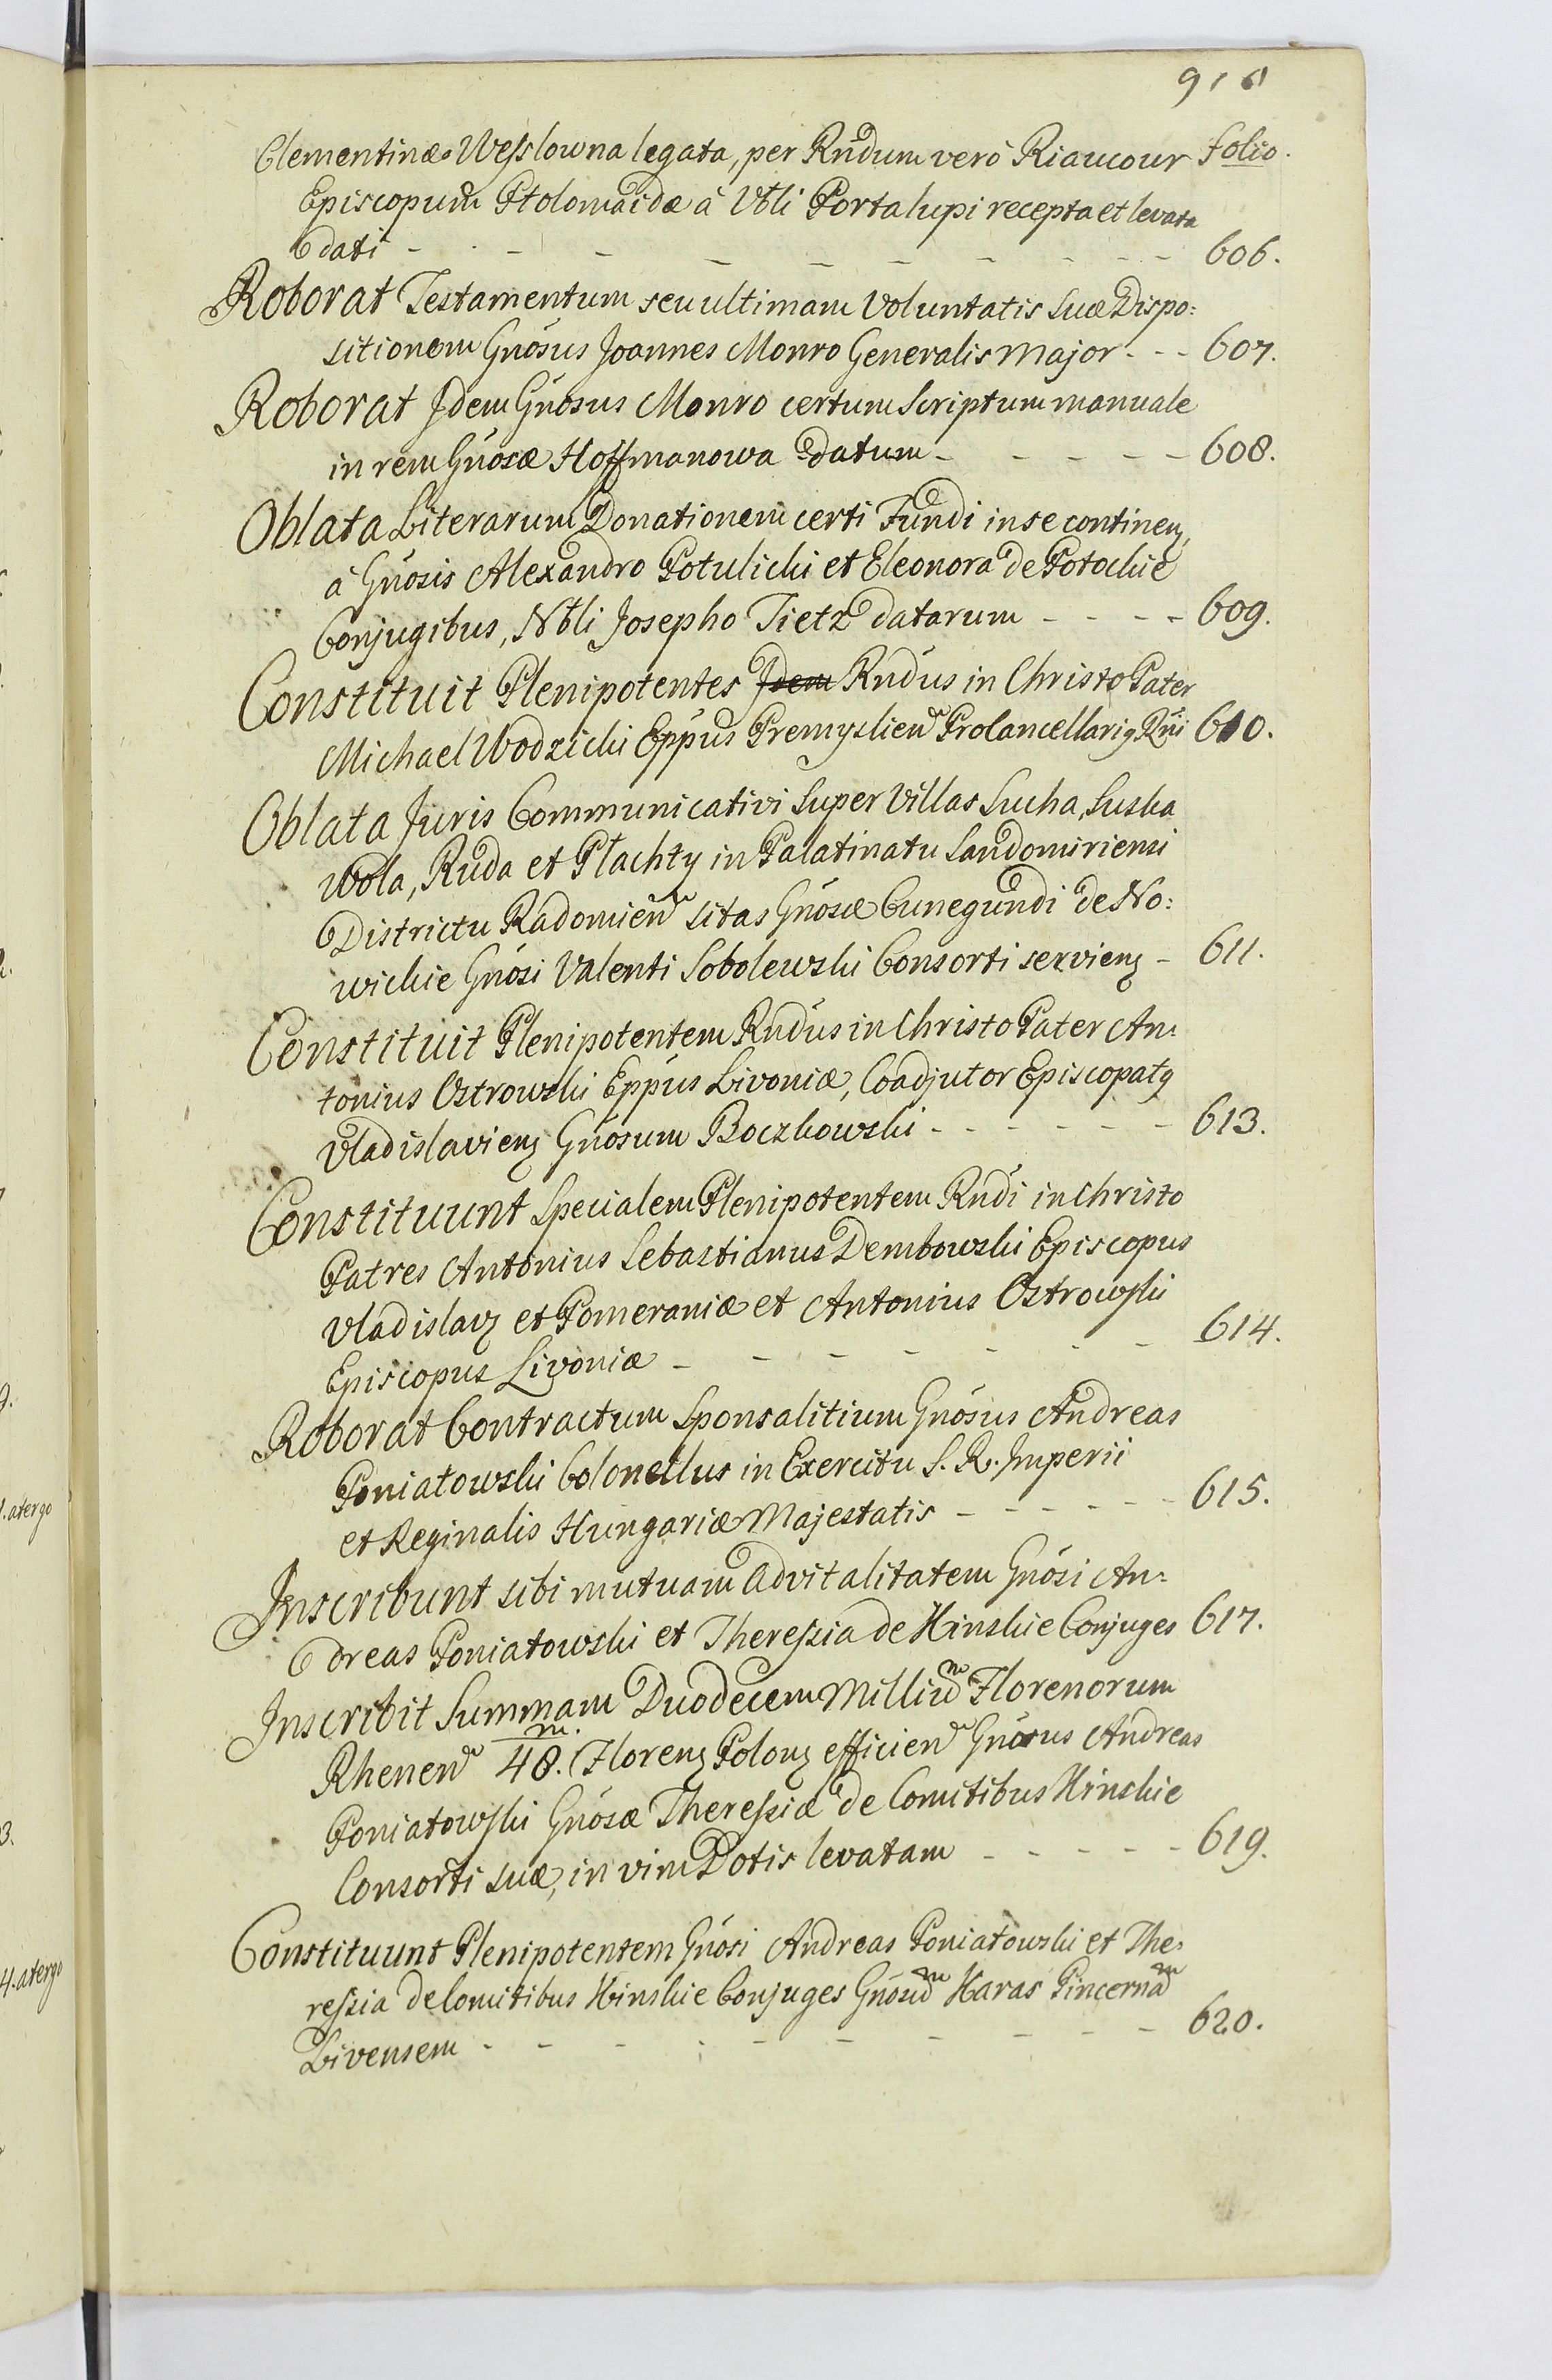 916
Clementinæ Wesslowna legata, per Rndum verò Riaucour folio.
Episcopum Ptolomaidæ à Nbli Portalupi recepta et levata
dati - - - - - - - - - - 606.
Roborat Testamentum seu ultimam Voluntatis Suæ Dispo:
sitionem Gnosus Joannes Monro Generalis Major - - - 607.
Roborat Jdem Gnosus Monro certum Scriptum manuale
in rem Gnosæ Hoffmanowa datum - - - - - 608.
Oblata Literarum Donationem certi Fundi in se continen,
à Gnosis Alexandro Potulicki et Eleonora de Potockie
Conjugibus, Nbli Josepho Tietz datarum - - - - 609.
Constituit Plenipotentes Jdem Rndus in Christo Pater
Michael Wodzicki Eppus Premyslien Procancellarig Rni 610.
Oblata Juris Communicativi Super Villas Sucha, Suska
Wola, Ruda et Płachty in Palatinatu Sandomiriensi
Districtu Radomien sitas Gnosæ Cunegundi de No:
wickie Gnosi Valenti Sobolewski Consorti servienz - 611.
Constituit Plenipotentem Rndus in Christo Pater An:
tonius Ostrowski Eppus Livoniæ, Coadjutor Episcopatg
Vladislavienz Gnosum Boczkowski - - - - - - 613.
Constituunt Specialem Plenipotentem Rndi in Christo
Patres Antonius Sebastianus Dembowski Episcopus
Vladislavz et Pomeraniæ et Antonius Ostrowski
Episcopus Livoniæ - - - - - - - 614.
Roborat Contractum Sponsalitium Gnosus Andreas
Poniatowski Colonellus in Exercitu S. R. Imperii
et Reginalis Hungariæ Majestatis - - - - - - 615.
Inscribunt sibi mutuam advitalitatem Gnosi An:
dreas Poniatowski et Theressia de Kinskie Conjuges 617.
Inscribit Summam Duodecem Milliu͠m Florenorum
Rhenen 48.m Florenz Polonz efficien Gnosus Andreas
Poniatowski Gnosæ Theressiæ de Comitibus Kinskie
Consorti suæ, in vim Dotis levatam - - - - - 619.
Constituunt Plenipotentem Gnosi Andreas Poniatowski et The:
ressia de Comitibus Kinskie Conjuges Gnosum Karas Pincernam
Livensem - - - - - - - - - 620.